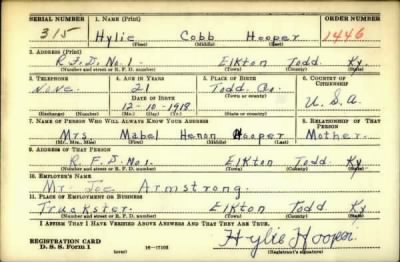 SERIAL NUMBER 1. NAME (Print) ORDER NUMBER
315 Hylie Cobb Hooper 1446
(First) (Middle) (Last)
3. ADDRESS (Print)
R.F.D. No. 1. Elkton Todd Ky.
(Number and street or R. F. D. number) (Town) (County) (State)
3. TELEPHONE 4. AGE IN YEARS 5. PLACE OF BIRTH 6. COUNTRY OF CITIZENSHIP
None 21 Todd Co.
DATE OF BIRTH (Town or county)
12-10-1918 Ky U.S.A.
(Exchange) (Number) (Mo.) (Day) (Yr.) (State or country)
7. NAME OF PERSON WHO WILL ALWAYS KNOW YOUR ADDRESS 8. RELATIONSHIP OF THAT PERSON
Mrs. Mabel Henon Hooper Mother
(Mr., Mrs., Miss) (First) (Middle) (Last)
9. ADDRESS OF THAT PERSON
R.F.D. No. 1. Elkton Todd Ky
(Number and street or R. F. D. number) (Town) (County) (State)
10. EMPLOYER'S NAME
Mr. Joe Armstrong.
11. PLACE OF EMPLOYMENT OR BUSINESS
Truckster Elkton Todd Ky
(Number and street or R. F. D. number) (Town) (County) (State)
I AFFIRM THAT I HAVE VERIFIED ABOVE ANSWERS AND THAT THEY ARE TRUE.
REGISTRATION CARD Hylie Hooper
D. S. S. Form 1 (over) 16-17105 (Registrant's signature)